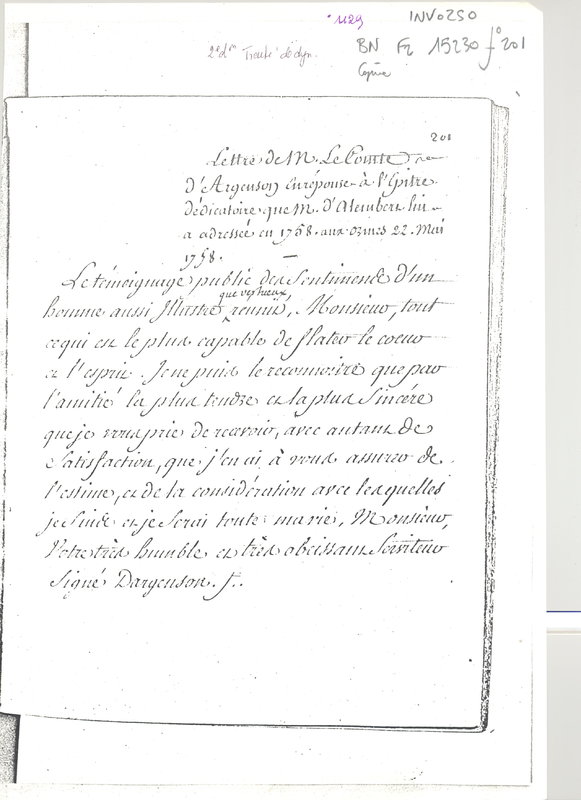 1129
INV0250
2e d°n Traité de dyn.
BN Fr 15230 f° 201
Copie
201
Lettre de M. Le Comte
d'Argenson En réponse à l'Epitre
dédicatoire que M. d'Alembert lui
a adressée en 1758. aux ormes 22. Mai
1758.
Le témoignage public des Sentimens d'un
homme aussi Illustre que vertueux, reunit, Monsieur, tout
ce qui est le plus capable de flater le coeur
et l'esprit. Je ne puis le reconnoitre que par
l'amitié la plus tendre et la plus Sincére
que je vous prie de recevoir, avec autant de
Satisfaction, que j'en ai à vous assurer de
l'estime, et de la considération avec lesquelles
je Suis et je Serai toute ma vie, Monsieur,
Votre très humble et très obeissant Serviteur
Signé Dargenson. f.